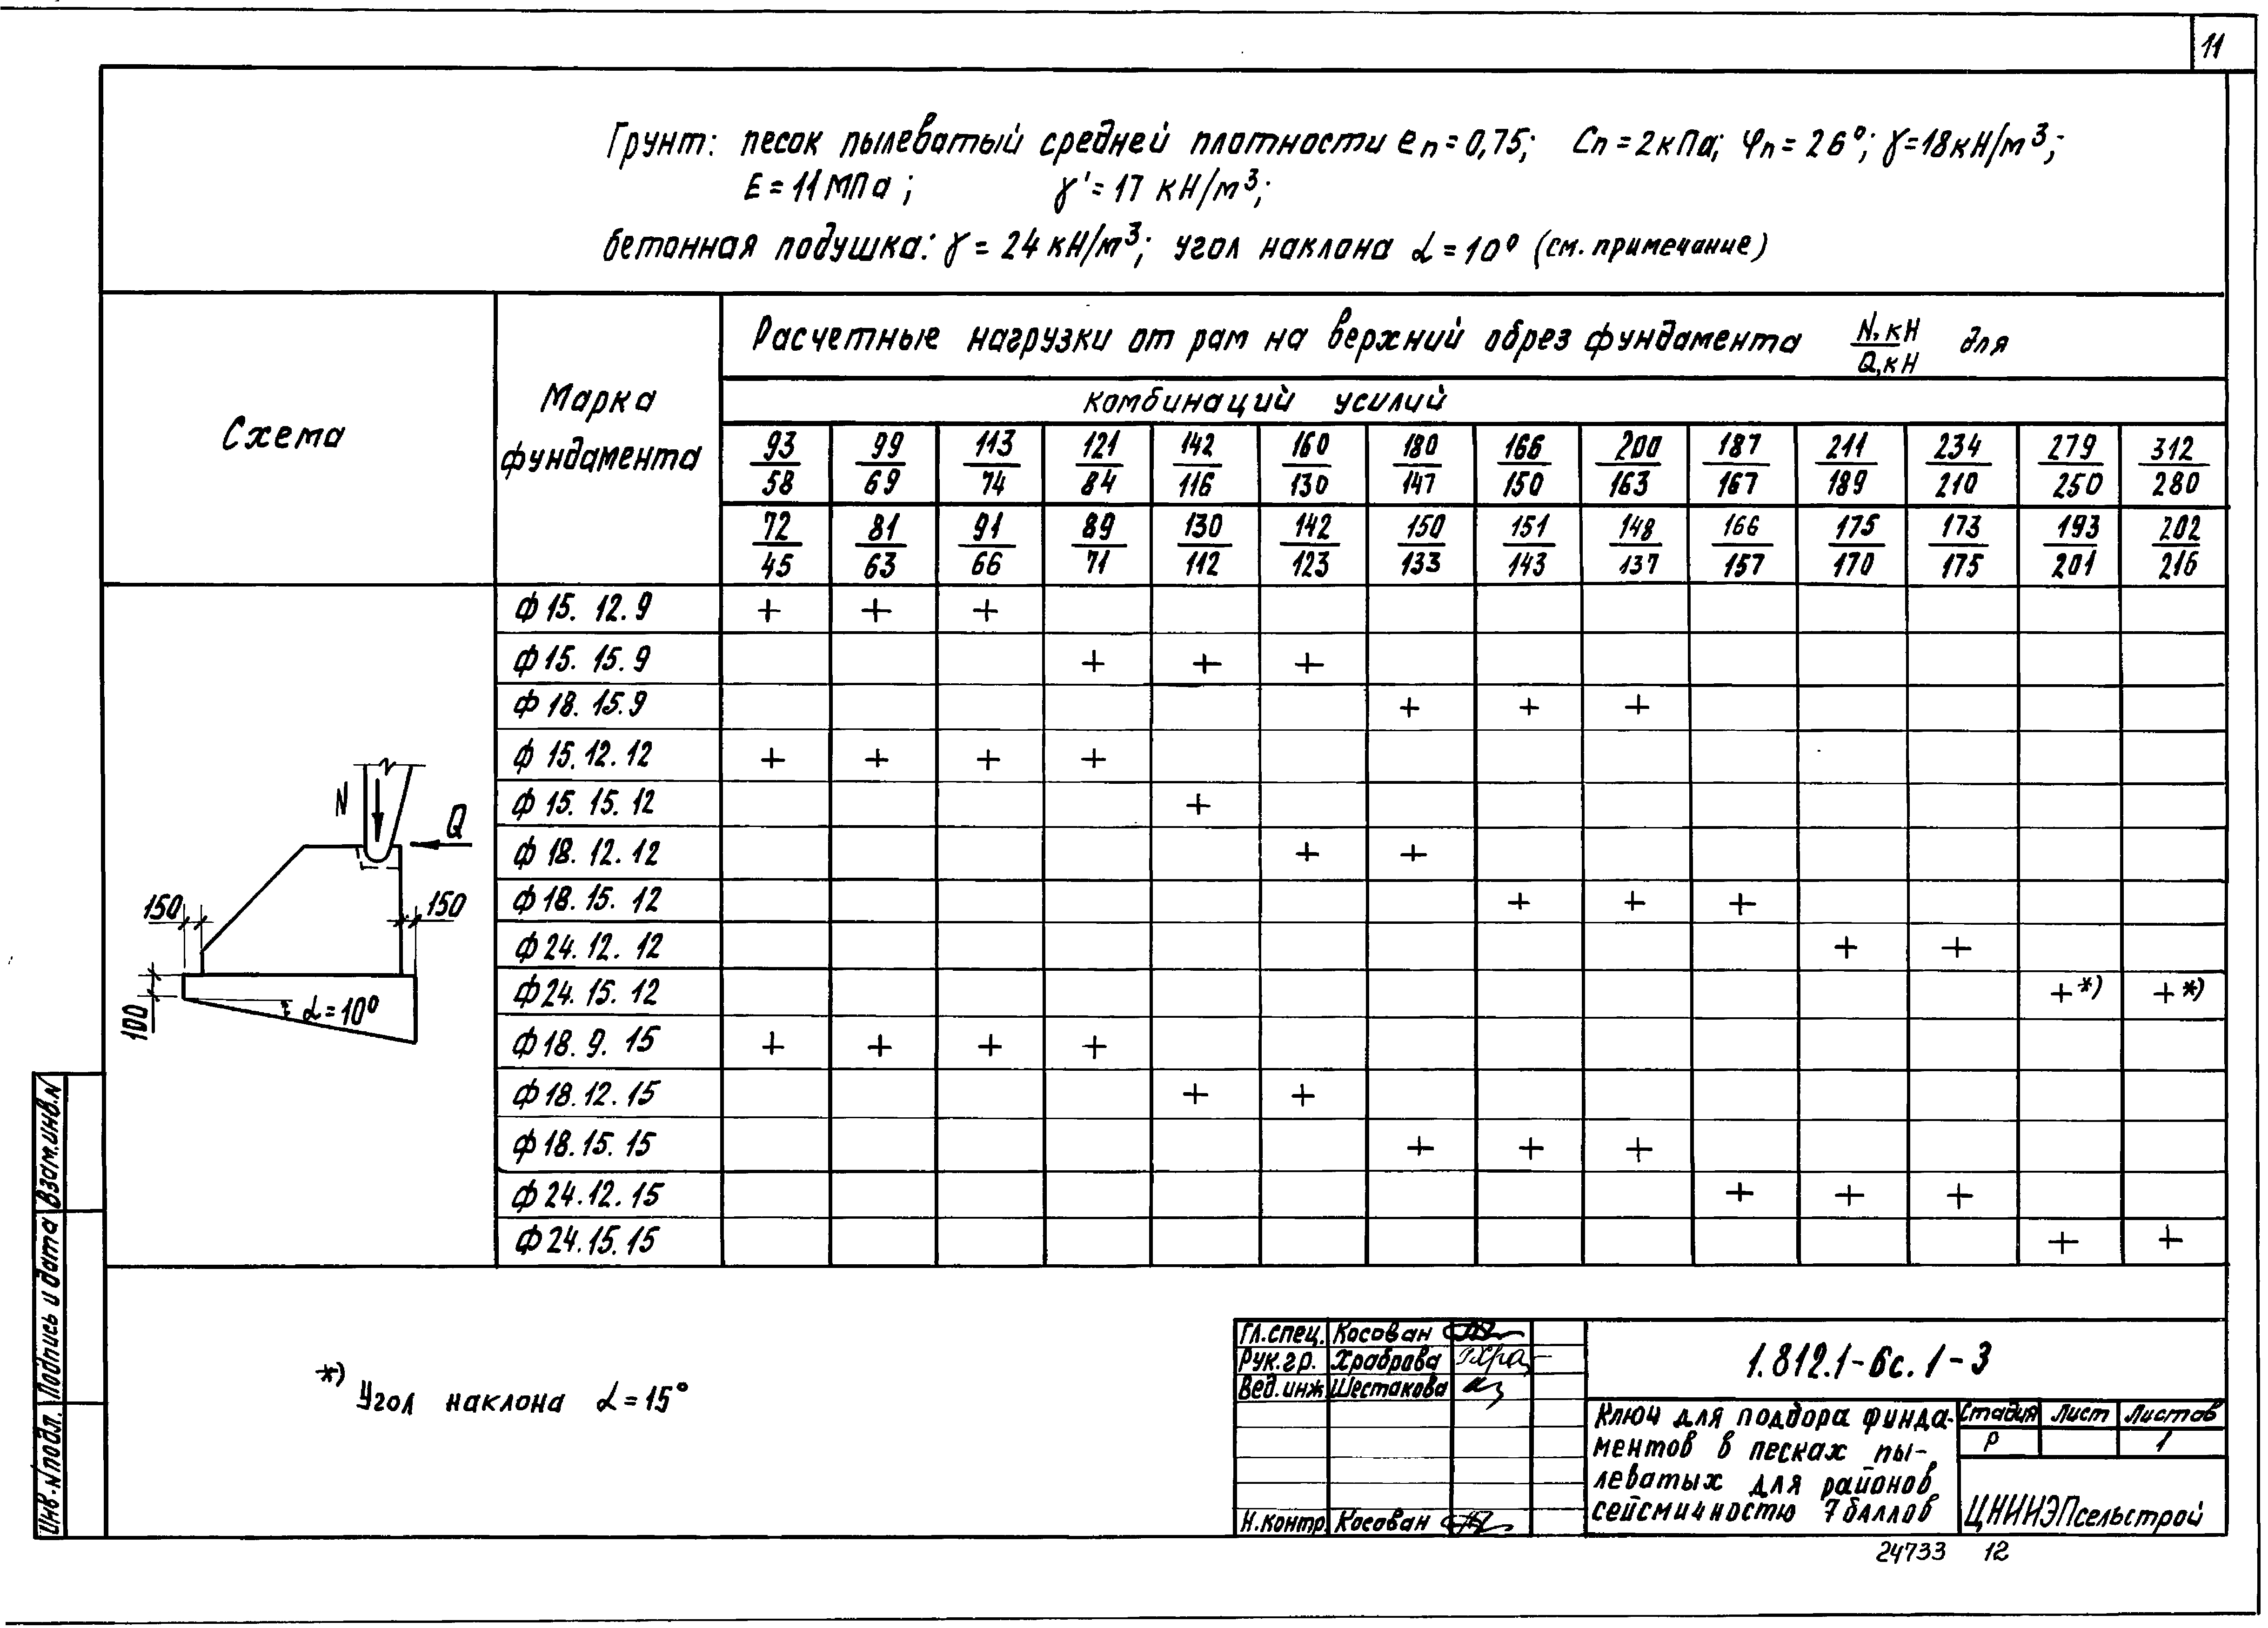 11
Грунт: песок пылеватый средней плотности eп=0,75; Cп=2кПа; φп=26°; γ=18кН/м³;
E=11МПа; γ'=17 кН/м³;
бетонная подушка: γ=24кН/м³; угол наклона α=10° (см. примечание)
Схема
Марка
фундамента
Расчетные нагрузки от рам на верхний обрез фундамента N,кН/Q,кН для
комбинаций усилий
93/58 99/69 113/74 121/84 142/116 160/130 180/147 166/150 200/163 187/167 211/189 234/210 279/250 312/280
72/45 81/63 91/66 89/71 130/112 142/123 150/133 151/143 148/137 166/157 175/170 173/175 193/201 202/216
Ф15.12.9 + + +
Ф15.15.9 + + +
Ф18.15.9 + + +
Ф15.12.12 + + + +
Ф15.15.12 +
Ф18.12.12 + +
Ф18.15.12 + + +
Ф24.12.12 + +
Ф24.15.12 +*) +*)
Ф18.9.15 + + + +
Ф18.12.15 + +
Ф18.15.15 + + +
Ф24.12.15 + + +
Ф24.15.15 + +
N
Q
150
150
100
α=10°
*) Угол наклона α=15°
Взам.инв.N
Подпись и дата
Инв.N подл.
Гл.спец. Косован
Рук.гр. Храброва
Вед.инж Шестакова
Н.контр. Косован
1.812.1-6с.1-3
Ключ для подбора фунда-
ментов в песках пы-
леватых для районов
сейсмичностью 7 баллов
Стадия Лист Листов
Р 1
ЦНИИЭПсельстрой
24733 12